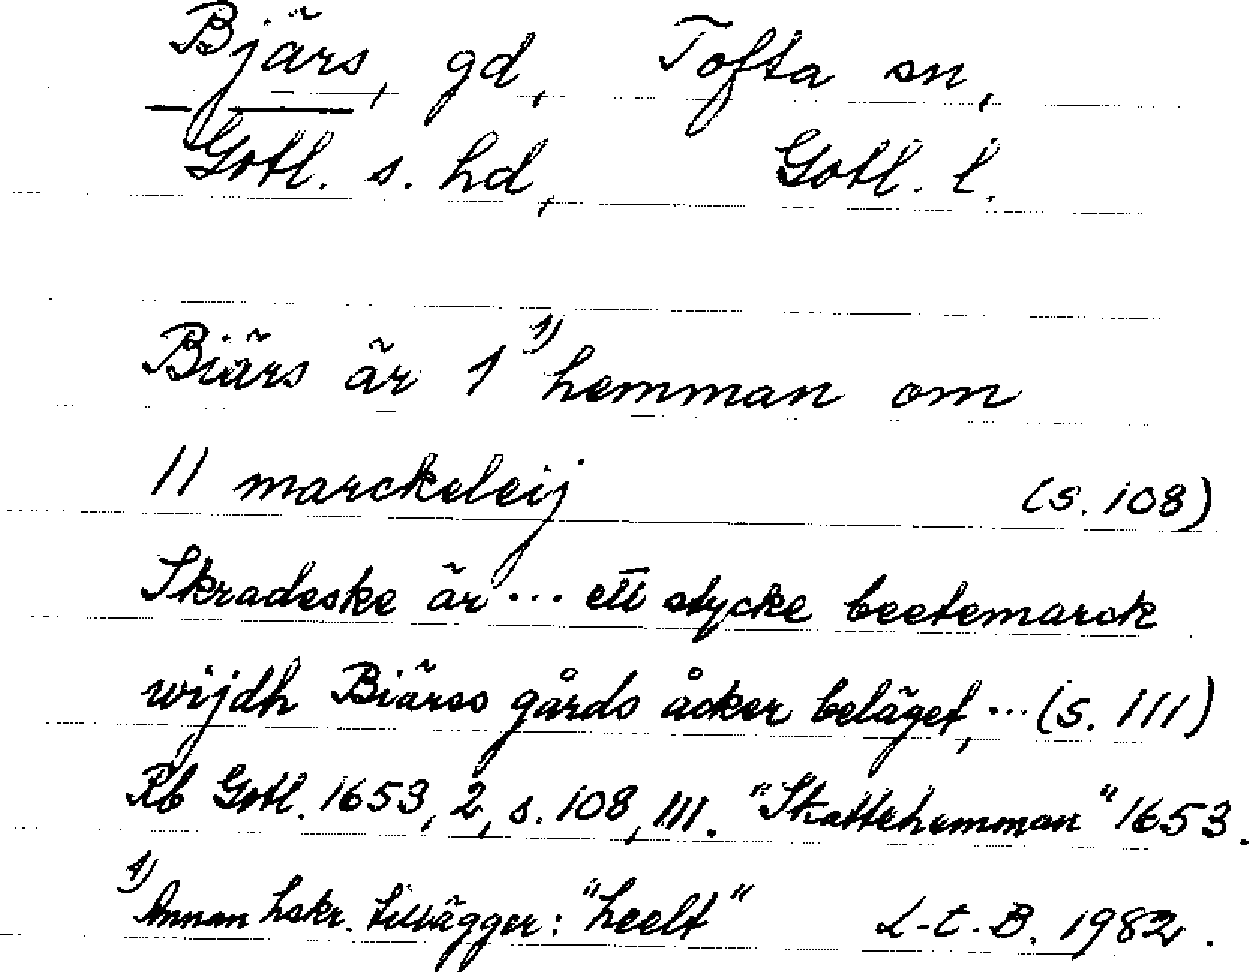 Bjärs, gd, Tofta sn,
Gotl. s. hd, Gotl. l.
Biärs är 1 1) hemman om
11 marckeleij (s. 108)
Skradeske är ... ett stycke beetemarck
wijdh Biärss gårds åcker beläget, ... (s. 111)
Rb Gotl. 1653, 2, s. 108, 111. "Skattehemman" 1653.
1) Annan hskr. tillägger: "heelt" L-E. B. 1982.